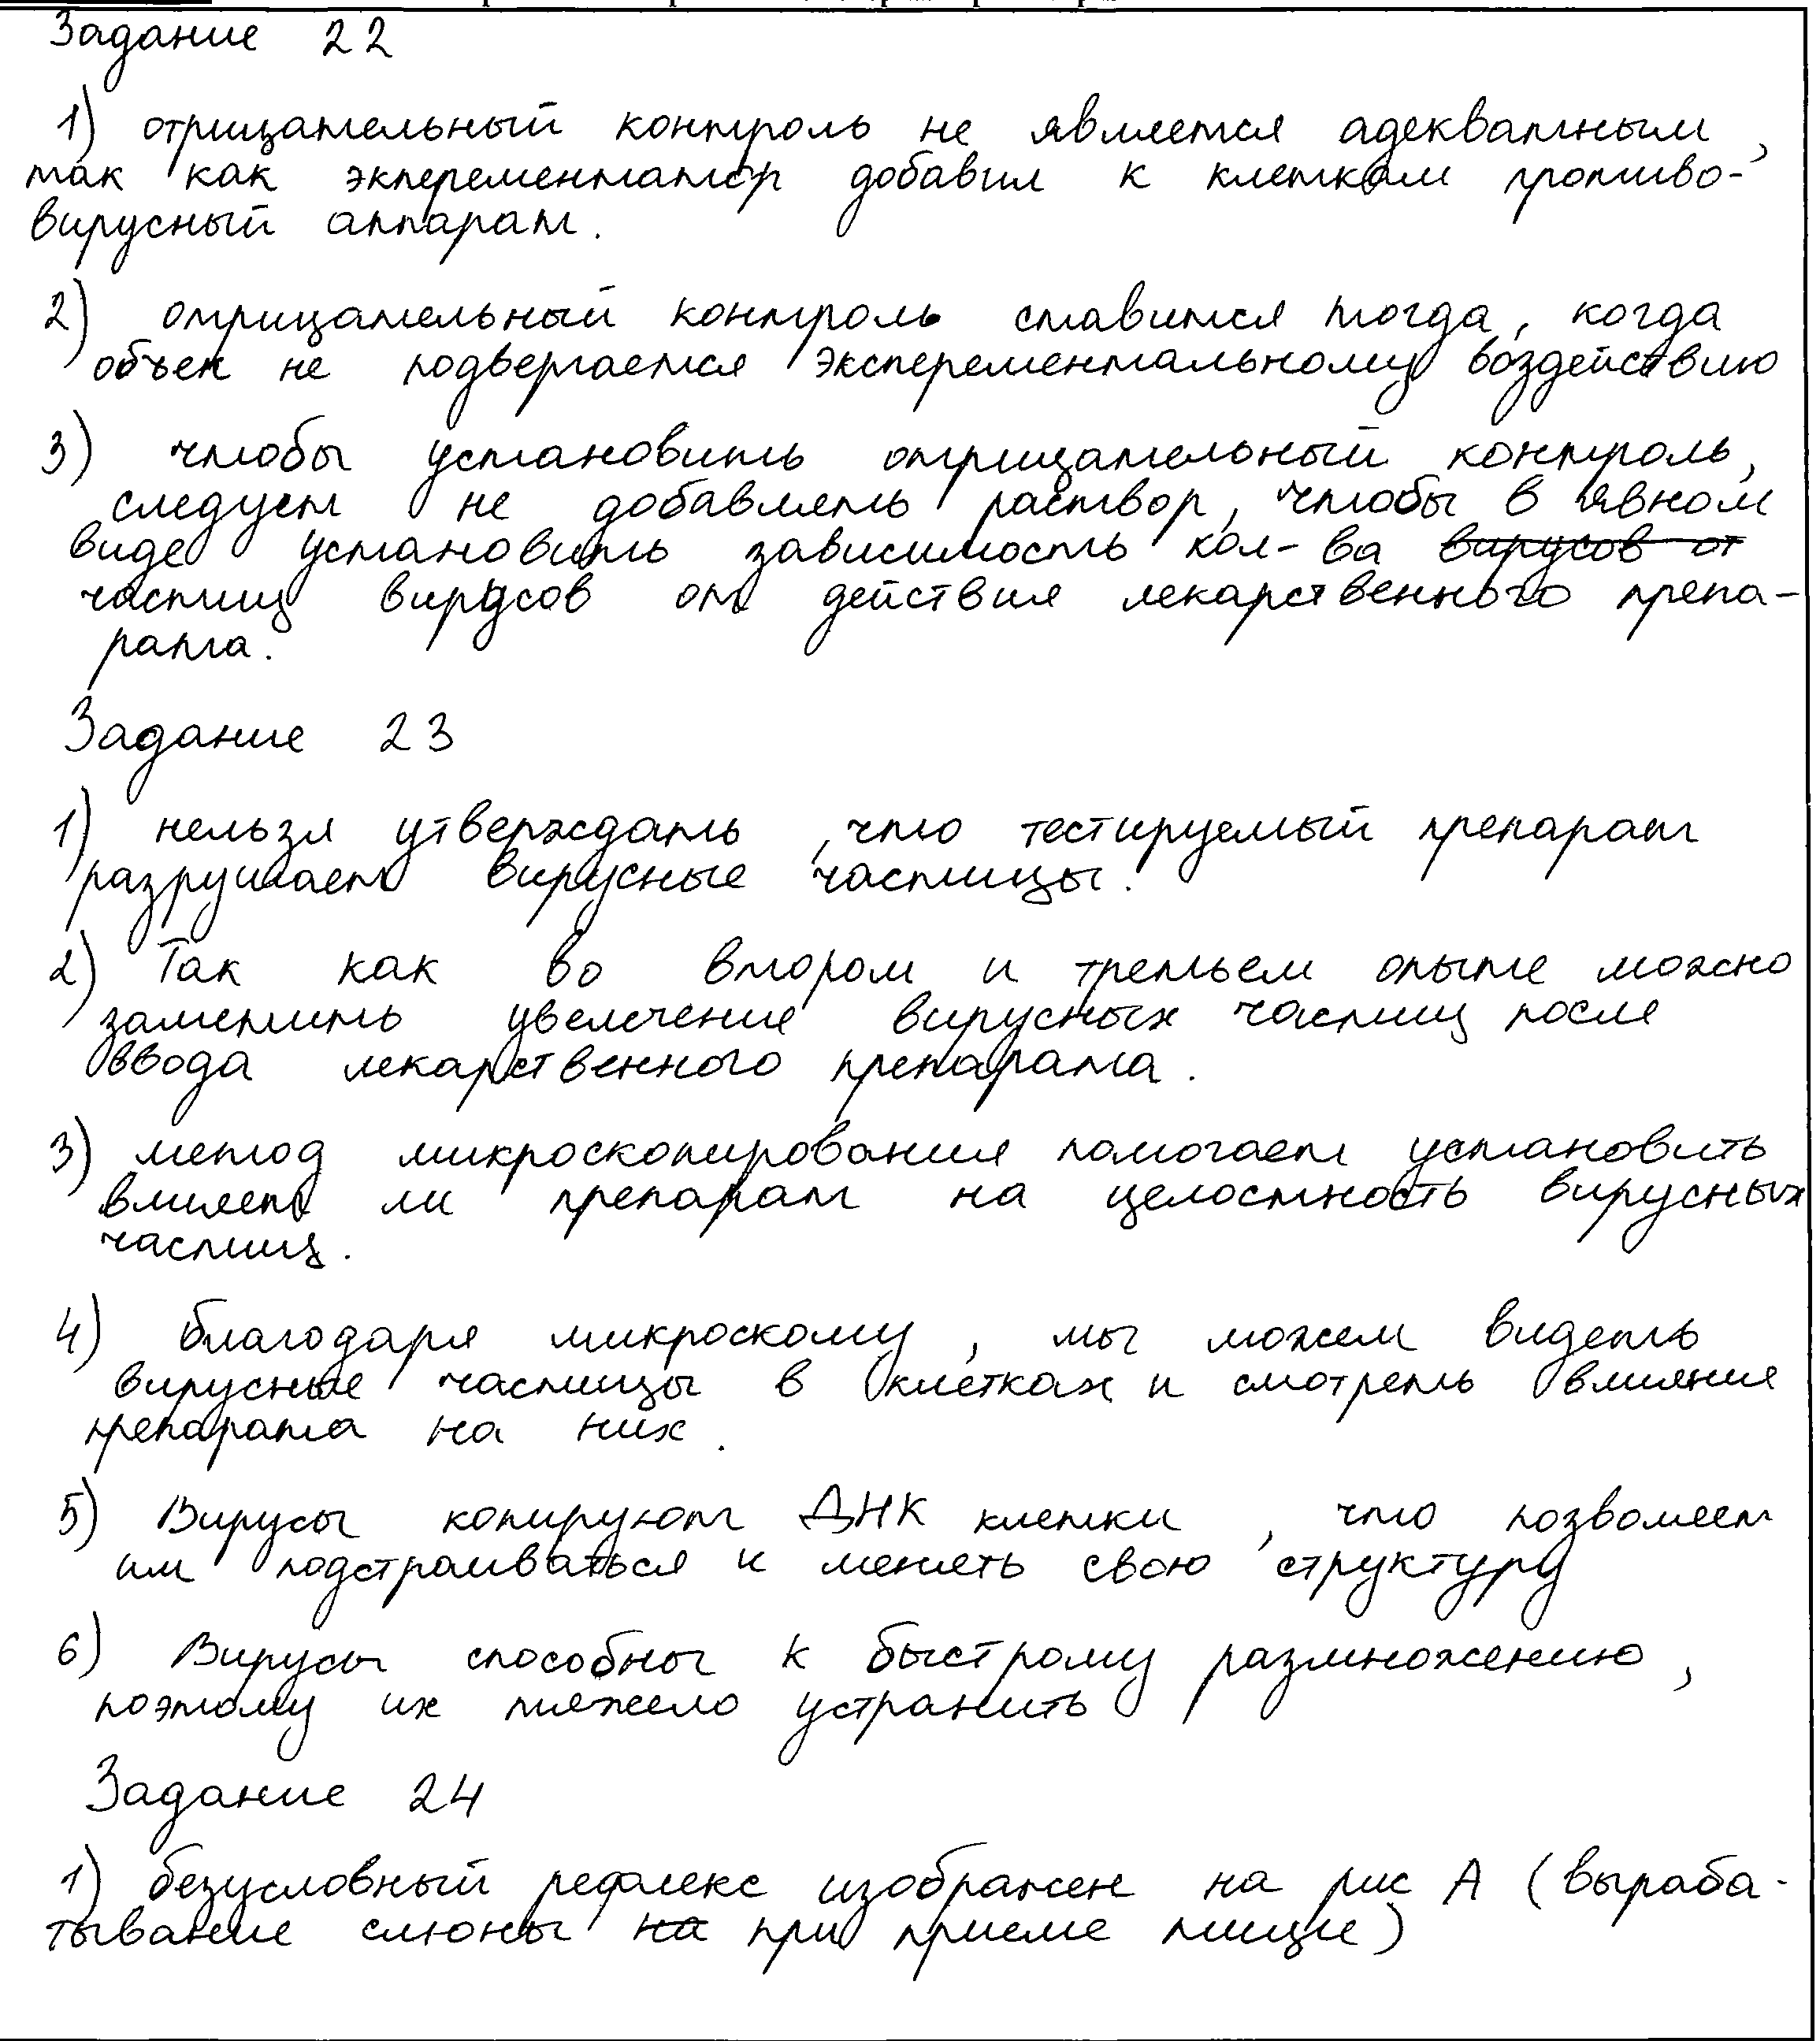 Задание 22
1) отрицательный контроль не является адекватным,
так как экперементатор добавил к клеткам противо-
вирусный аппарат.
2) отрицательный контроль ставится тогда, когда
объек не подвергается эксперементальному воздействию
3) чтобы установить отрицательный контроль,
следует не добавлять раствор, чтобы в явном
виде установить зависимость кол-ва вирусов от
частиц вирусов от действия лекарственного препа-
рата.
Задание 23
1) нельзя утверждать, что тестируемый препарат
разрушает вирусные частицы.
2) Так как во втором и третьем опыте можно
заметить увелечение вирусных частиц после
ввода лекарственного препарата.
3) метод микроскопирования помогает установить
влияет ли препарат на целостность вирусных
частиц.
4) благодаря микроскопу, мы можем видеть
вирусные частицы в клетках и смотреть влияние
препарата на них.
5) Вирусы копируют ДНК клетки, что позволяет
им подстраиваться и менять свою структуру
6) Вирусы способны к быстрому размножению,
поэтому их тяжело устранить
Задание 24
1) безусловный рефлекс изображен на рис А (выраба-
тывание слюны на при приеме пищи)